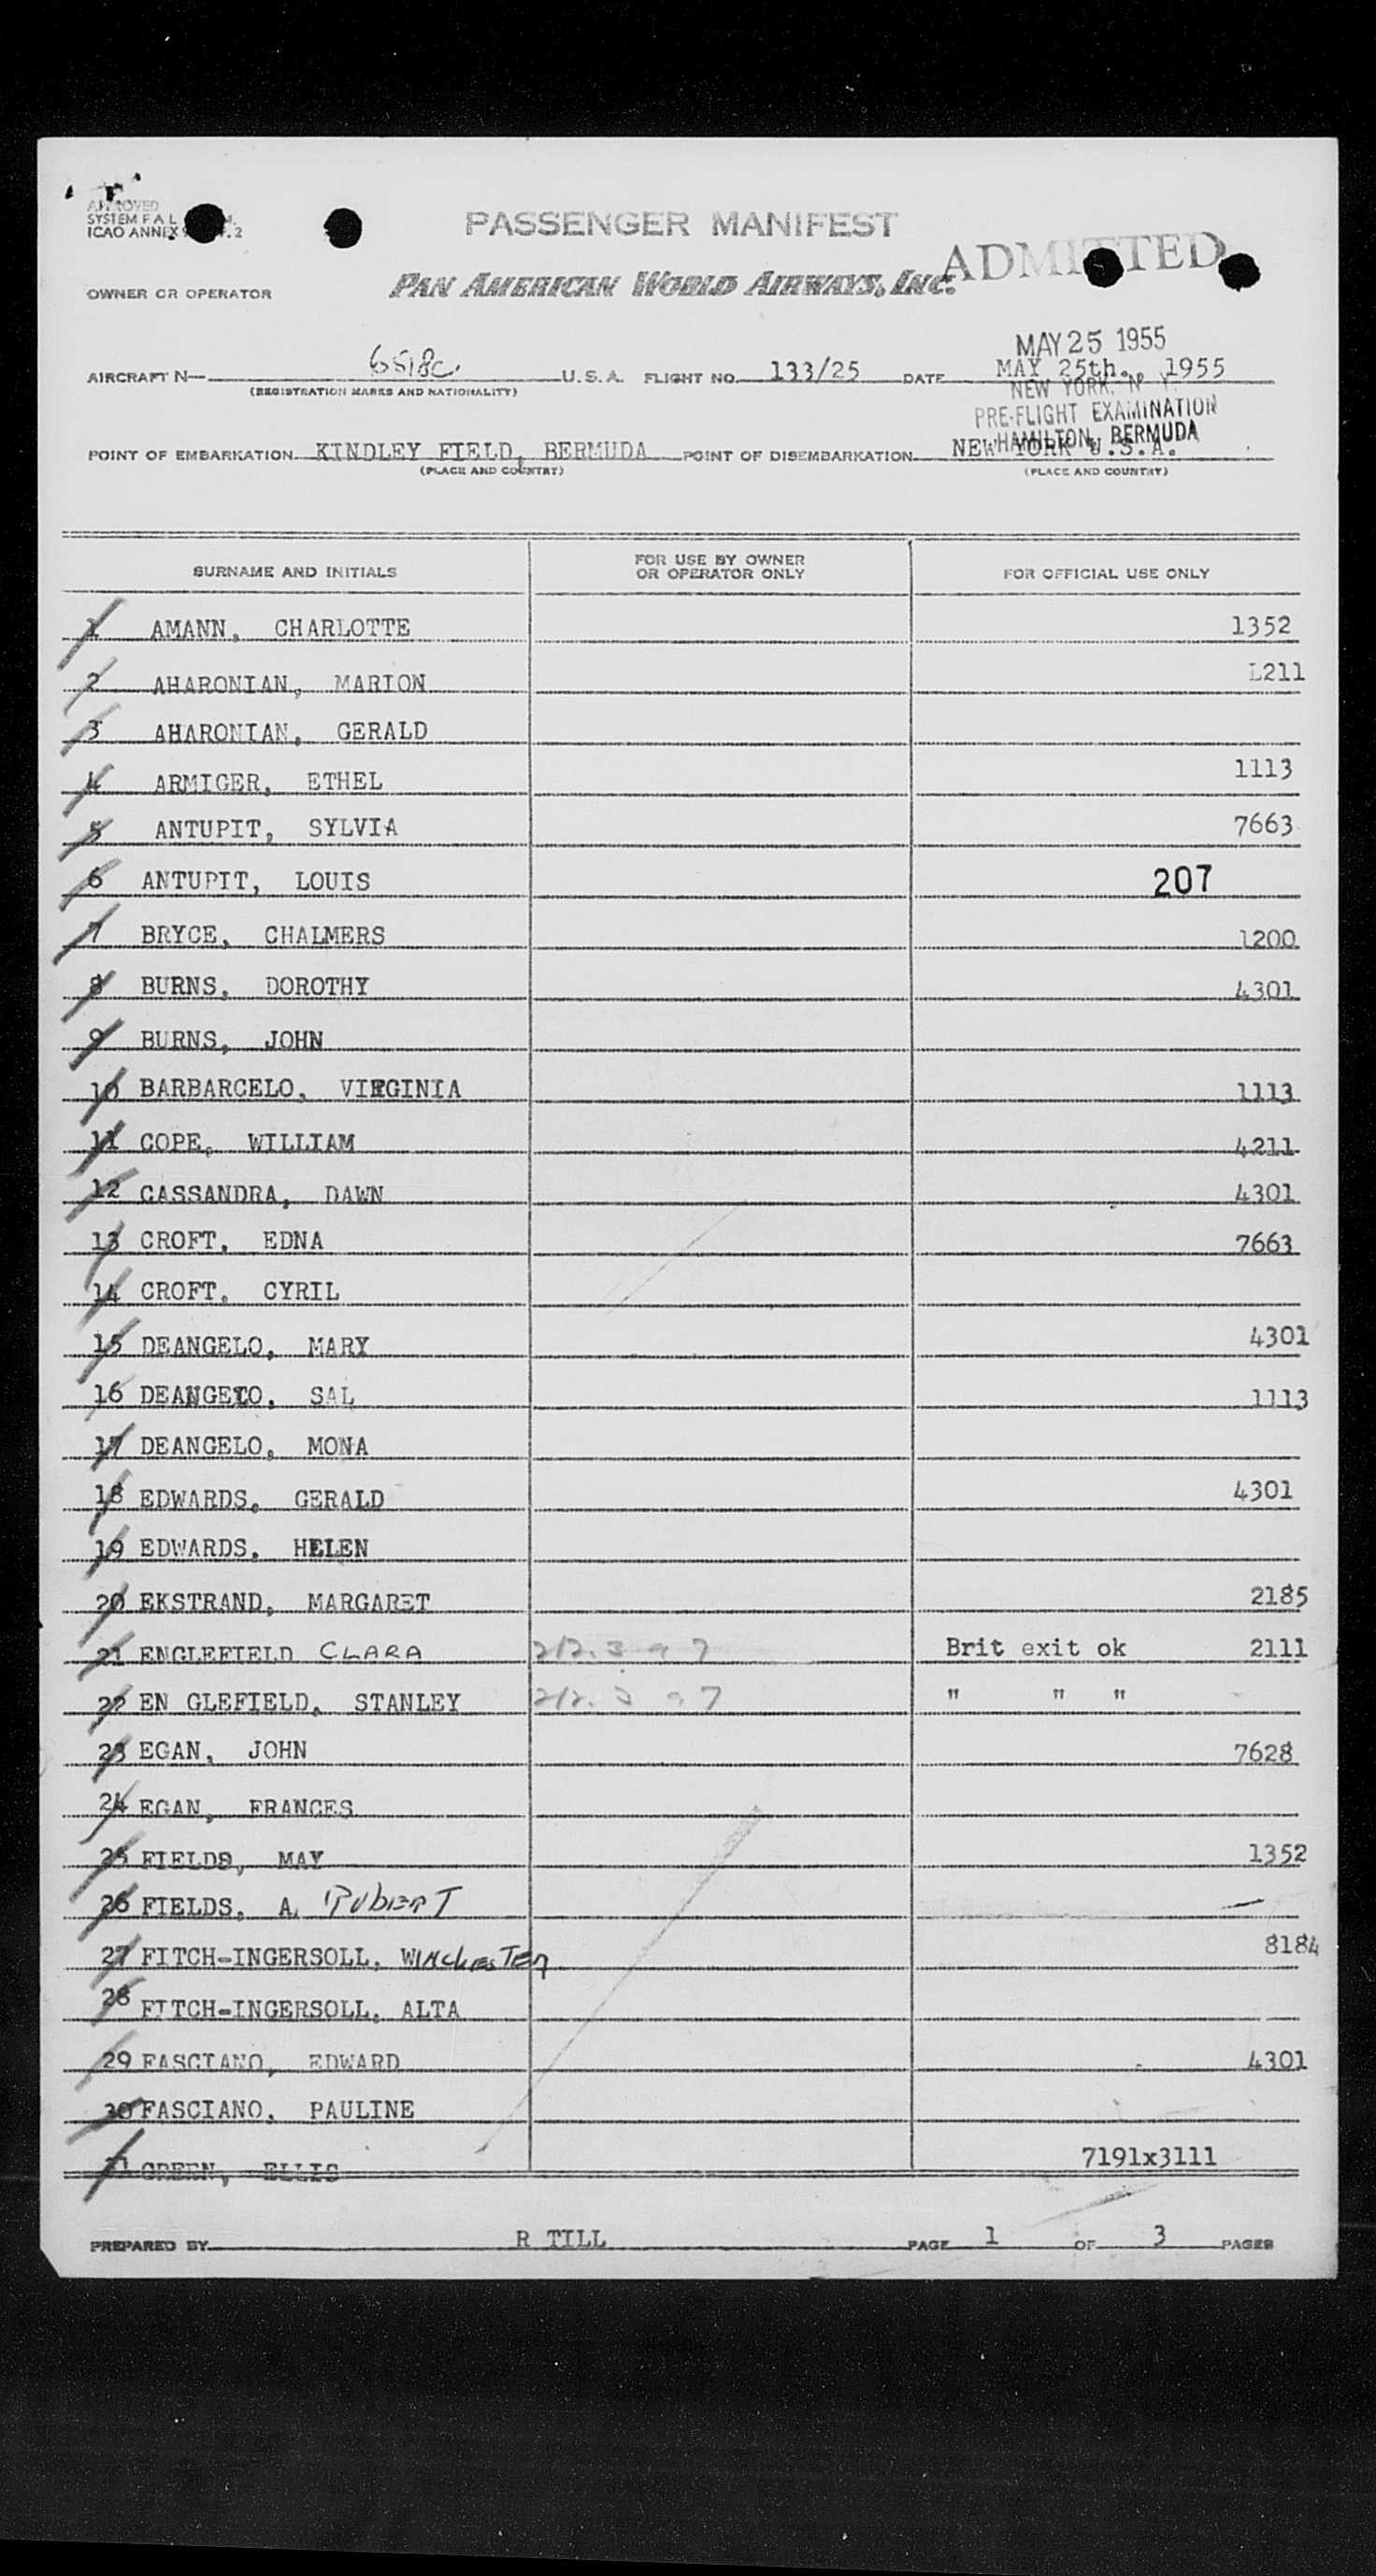 APPROVED
SYSTEM F A L
ICAO ANNEX 9 .2
PASSENGER MANIFEST
ADMITTED
OWNER OR OPERATOR PAN AMERICAN WORLD AIRWAYS, INC.
MAY 25 1955
AIRCRAFT N— 6518C U.S.A. FLIGHT NO. 133/25 DATE MAY 25th. 1955
(REGISTRATION MARKS AND NATIONALITY)
NEW YORK, N. Y.
PRE-FLIGHT EXAMINATION
HAMILTON, BERMUDA
POINT OF EMBARKATION KINDLEY FIELD, BERMUDA POINT OF DISEMBARKATION NEW YORK U.S.A.
(PLACE AND COUNTRY) (PLACE AND COUNTRY)
SURNAME AND INITIALS FOR USE BY OWNER OR OPERATOR ONLY FOR OFFICIAL USE ONLY
1 AMANN, CHARLOTTE 1352
2 AHARONIAN, MARION 1211
3 AHARONIAN, GERALD
4 ARMIGER, ETHEL 1113
5 ANTUPIT, SYLVIA 7663
6 ANTUPIT, LOUIS 207
7 BRYCE, CHALMERS 1200
8 BURNS, DOROTHY 4301
9 BURNS, JOHN
10 BARBARCELO, VIRGINIA 1113
11 COPE, WILLIAM 4211
12 CASSANDRA, DAWN 4301
13 CROFT, EDNA 7663
14 CROFT, CYRIL
15 DEANGELO, MARY 4301
16 DEANGELO, SAL 1113
17 DEANGELO, MONA
18 EDWARDS, GERALD 4301
19 EDWARDS, HELEN
20 EKSTRAND, MARGARET 2185
21 ENGLEFIELD CLARA 212.3 a 7 Brit exit ok 2111
22 EN GLEFIELD, STANLEY 212.3 a 7 " " "
23 EGAN, JOHN 7628
24 EGAN, FRANCES
25 FIELDS, MAY 1352
26 FIELDS, A. RUBERT —
27 FITCH-INGERSOLL, WINCHESTER 8184
28 FITCH-INGERSOLL, ALTA
29 FASCIANO, EDWARD 4301
30 FASCIANO, PAULINE
31 GREEN, ELLIS 7191x3111
PREPARED BY R TILL PAGE 1 OF 3 PAGES